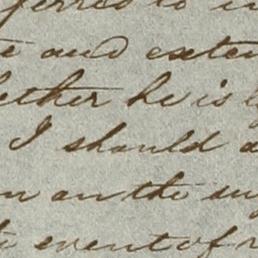 ferred to in
e and exten
hether he is l
I should a
on on the su
te event of r